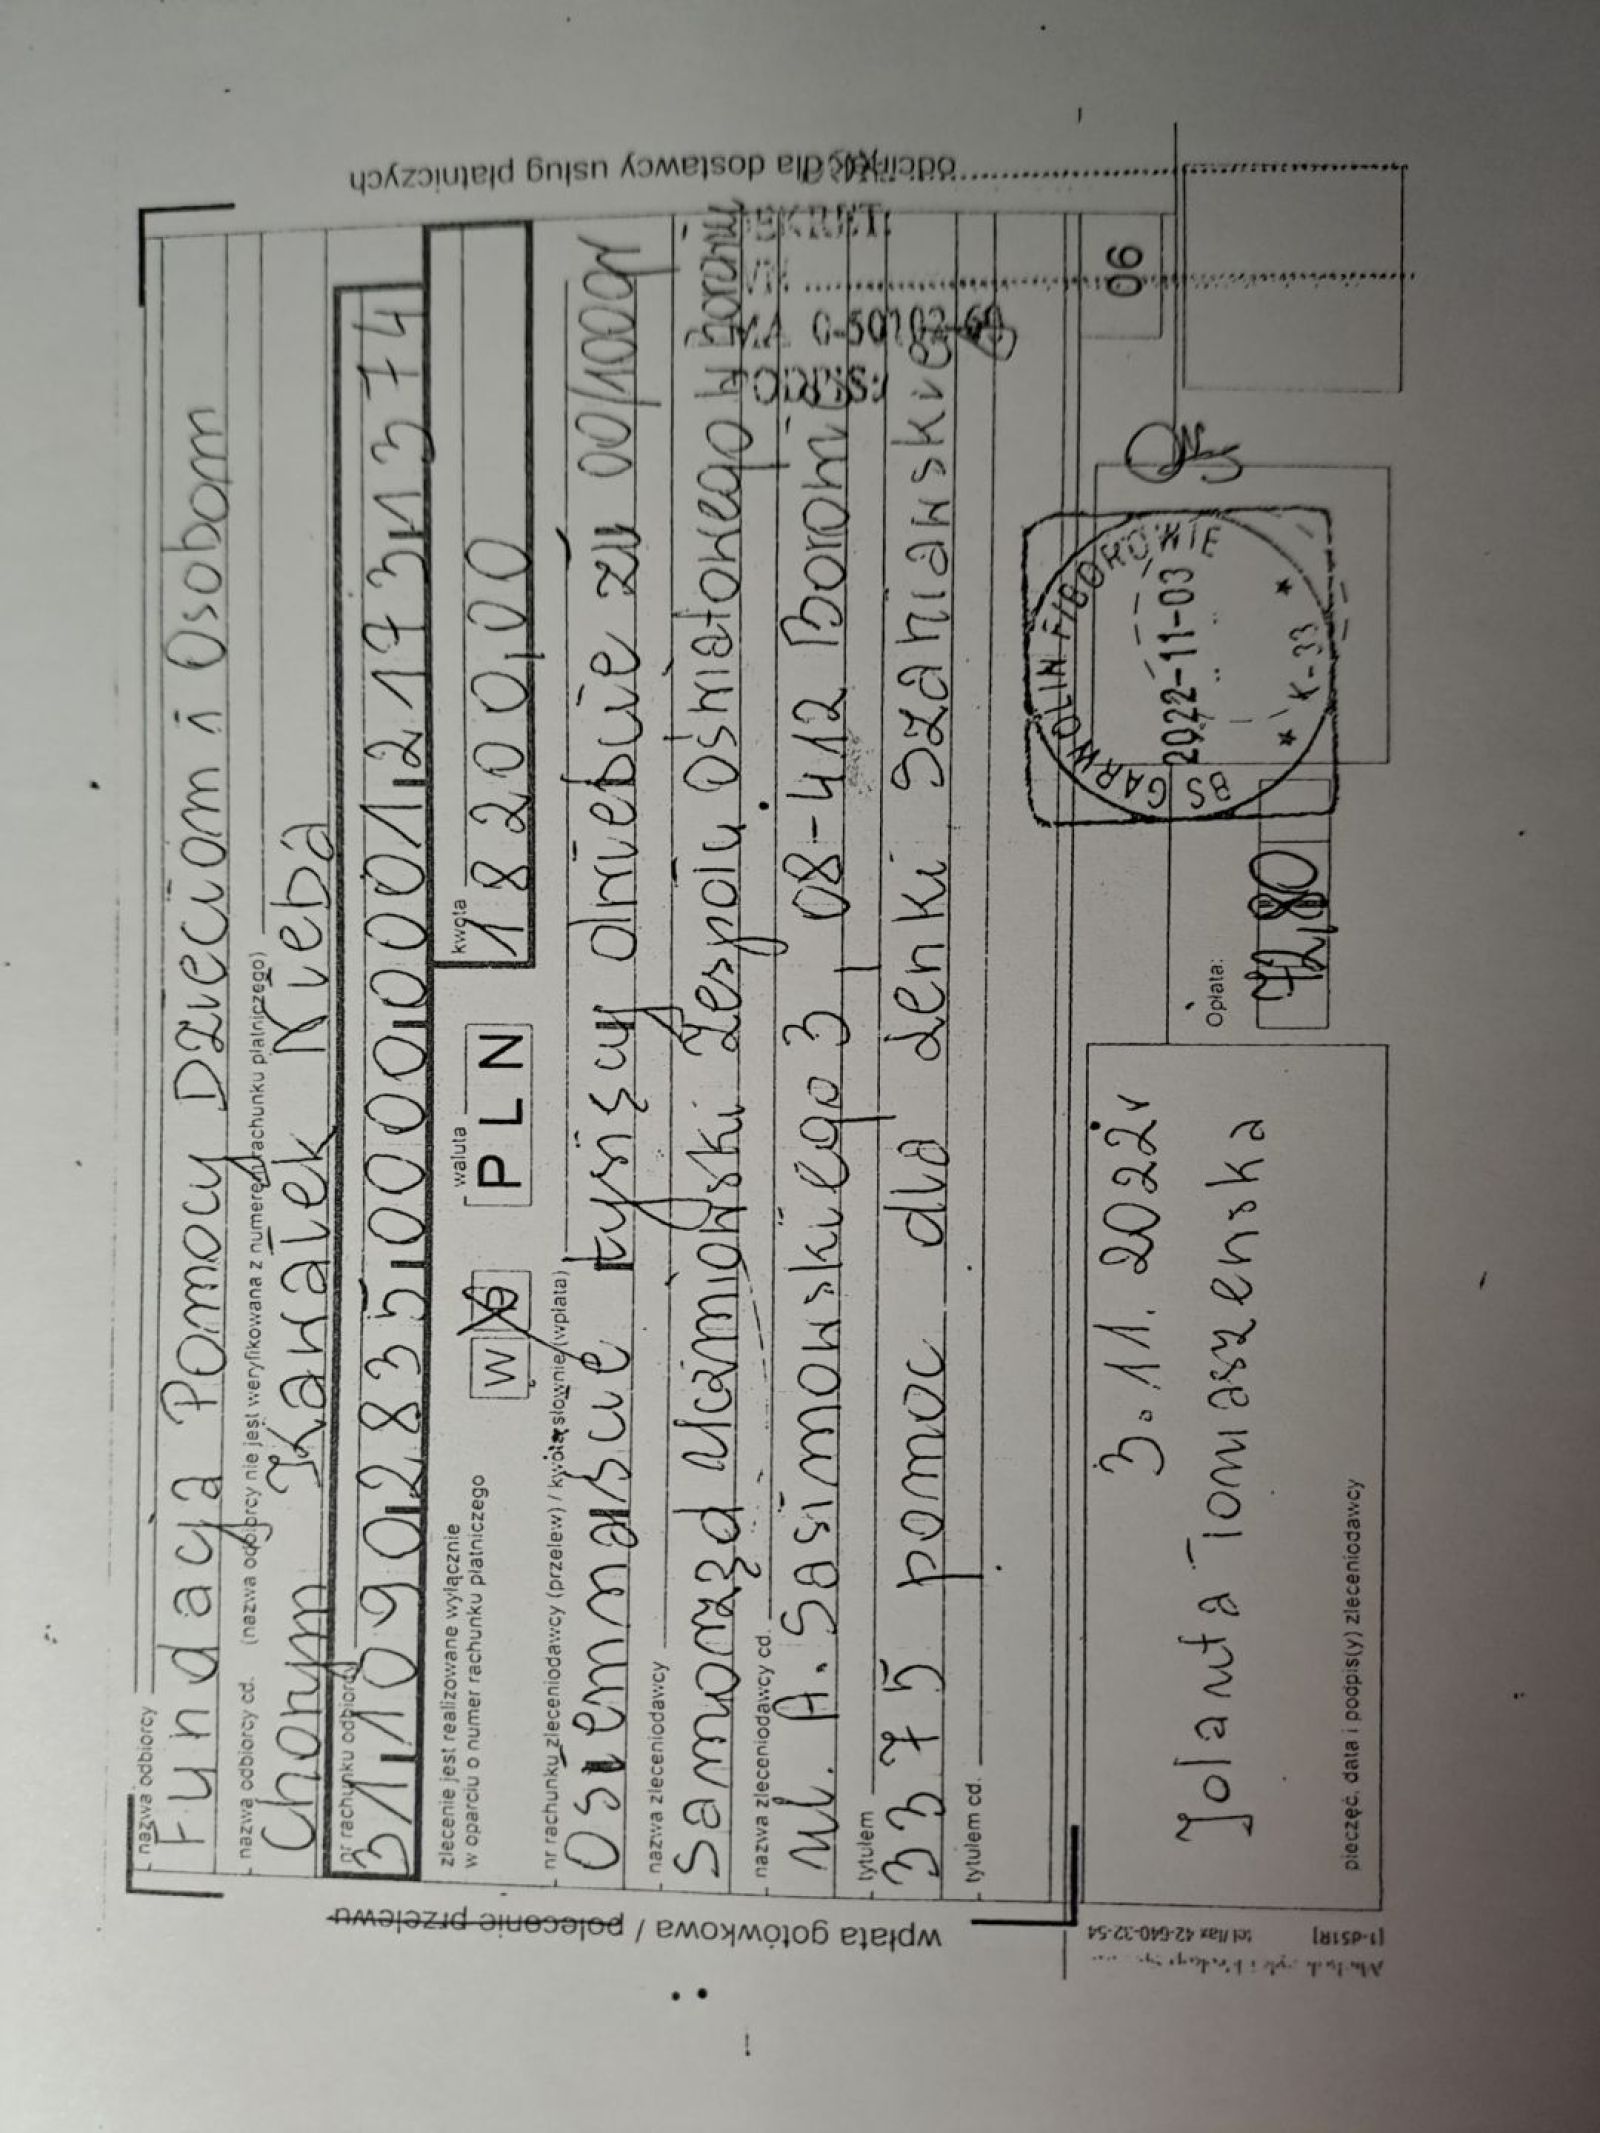 odcinek dla dostawcy usług płatniczych
nazwa odbiorcy
Fundacja Pomocy Dzieciom i Osobom
nazwa odbiorcy cd. (nazwa odbiorcy nie jest weryfikowana z numerem rachunku płatniczego)
Chorym Kawałek Nieba
nr rachunku odbiorcy
31109028350000000121731374
zlecenie jest realizowane wyłącznie
w oparciu o numer rachunku płatniczego
W
waluta
PLN
kwota
18200,00
nr rachunku zleceniodawcy (przelew) / kwota słownie (wpłata)
Osiemnaście tysięcy dwieście zł 00/100gr
nazwa zleceniodawcy
Samorząd Uczniowski Zespołu Oświatowego w
nazwa zleceniodawcy cd.
ul. A. Sasimowskiego 3, 08-412 Borowie
tytułem
3375 pomoc dla Lenki Szaniawskiej
tytułem cd.
wpłata gotówkowa / polecenie przelewu
06
3.11.2022r
Jolanta Tomaszewska
pieczęć, data i podpis(y) zleceniodawcy
Opłata:
72,80
BS GARWOLIN F/BOROWIE
2022-11-03
* K-33 *
tel/fax 42-640-32-54